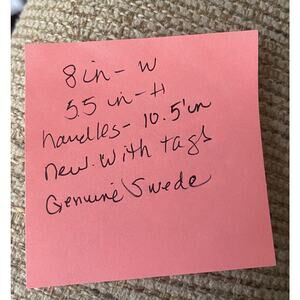 8 in - W
5.5 in - H
handles - 10.5 in
new. with tags
Genuine Swede